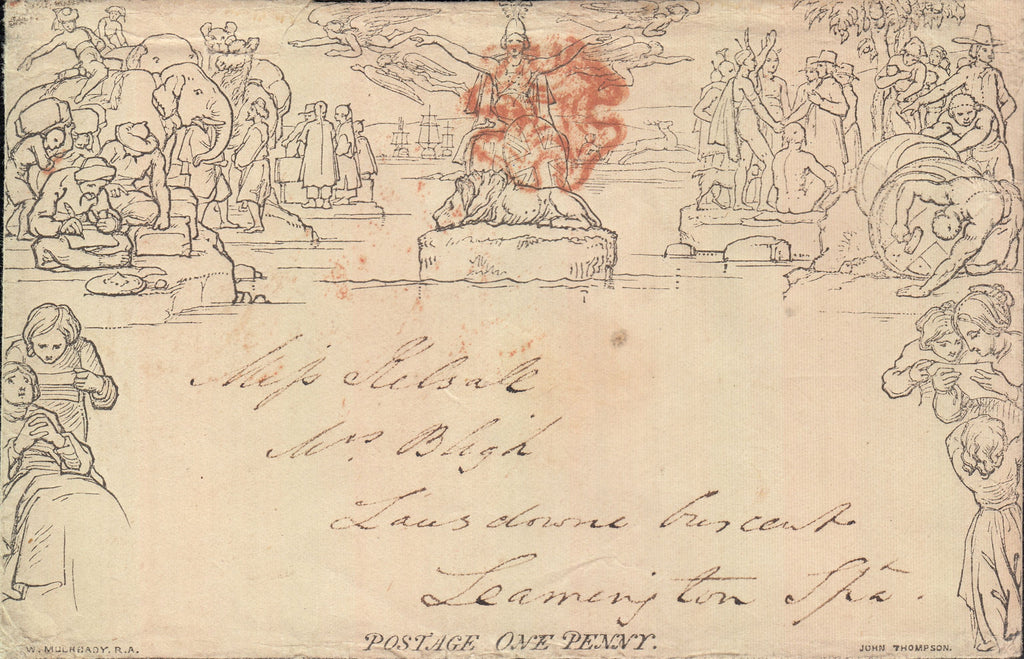 Miss Kelsall
Mrs Bligh
Lansdowne Crescent
Leamington Spa.
POSTAGE ONE PENNY.
W. MULREADY. R.A.
JOHN THOMPSON.